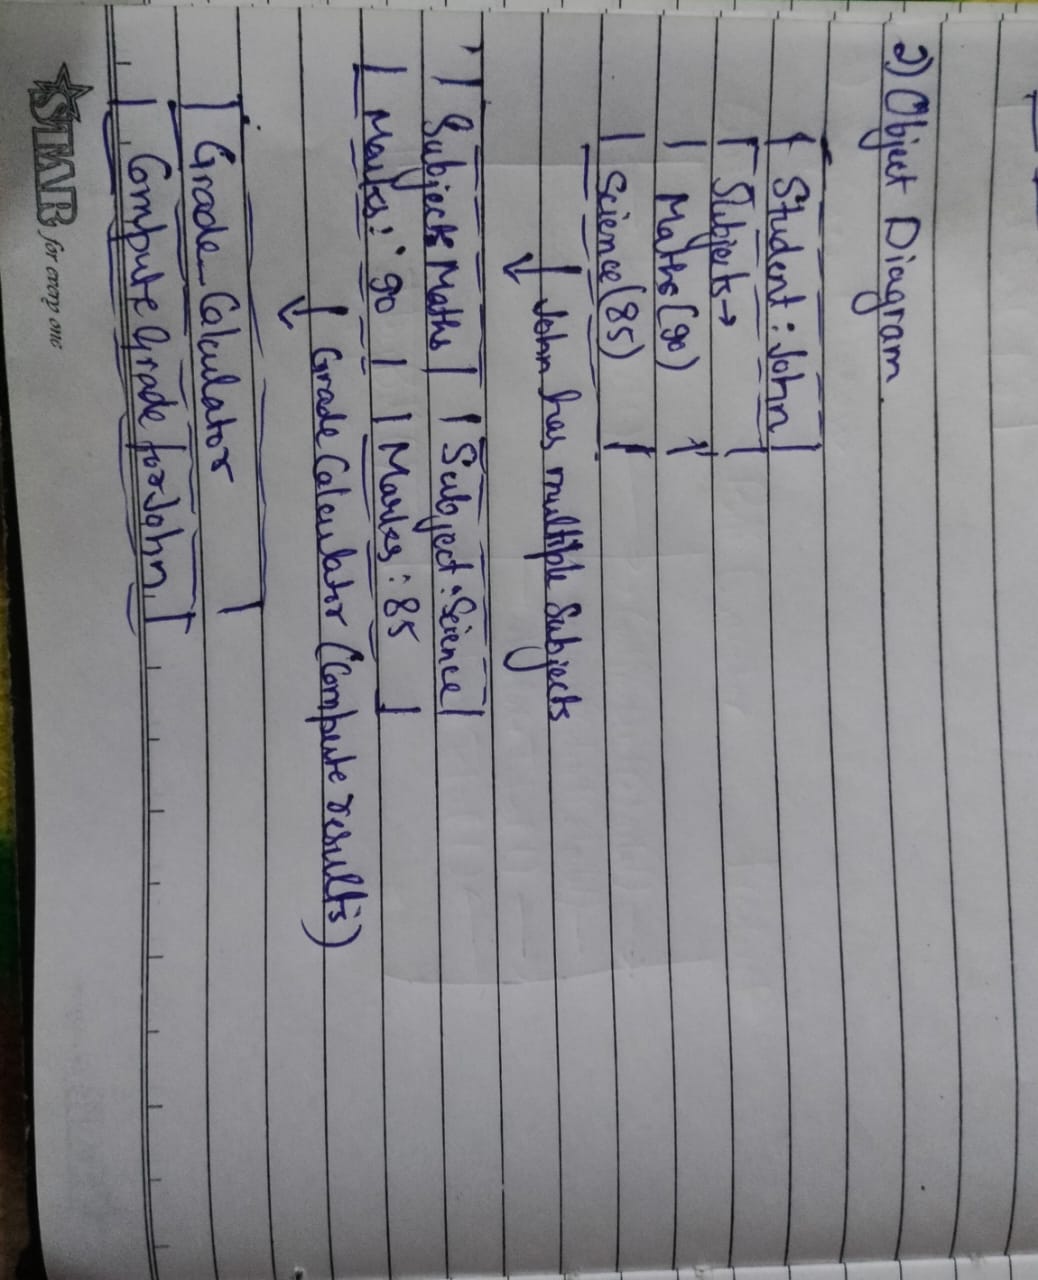 2) Object Diagram.
Student : John
Subjects →
Maths (90)
Science (85)
John has multiple Subjects
Subject: Maths | Subject : Science
Marks : 90 | Marks : 85
Grade Calculator (Compute results)
Grade Calculator
Compute Grade for John
STAR for every one